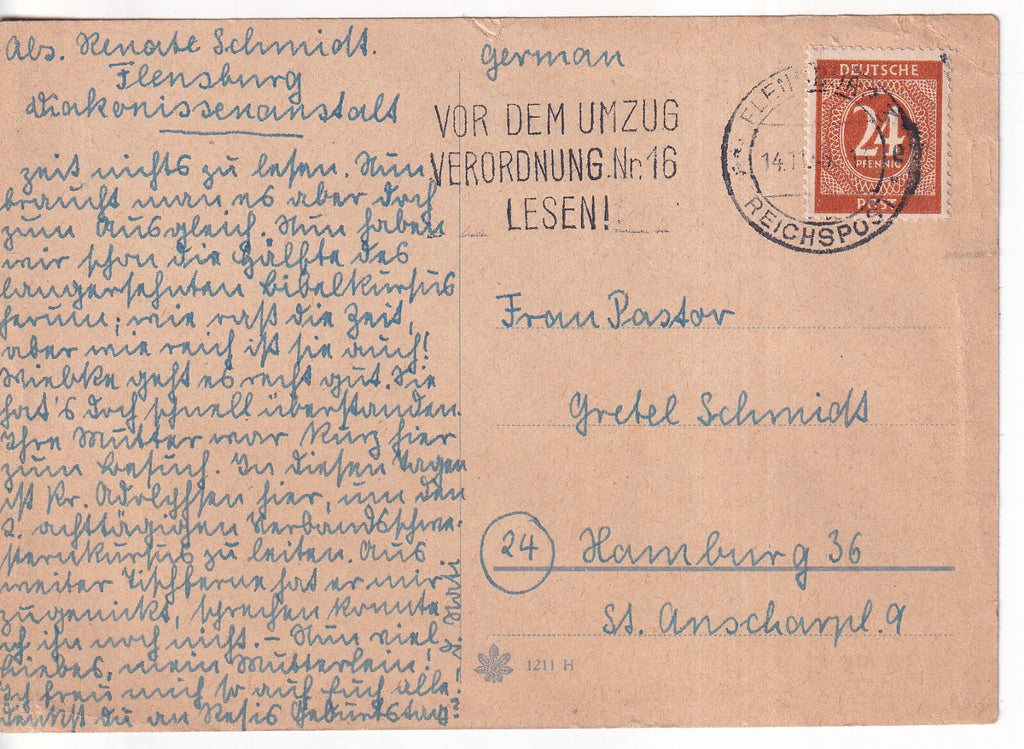 Abs. Renate Schmidt.
Flensburg
Diakonissenanstalt
zeit nichts zu lesen. Nun
braucht man es aber doch
zum Ausgleich. Nun haben
wir schon die Hälfte des
langersehnten Bibelkursus
herum; wie rast die Zeit,
aber wie reich ist sie auch!
Wiebke geht es recht gut. Sie
hat's doch schnell überstanden.
Ihre Mutter war kurz hier
zum Besuch. In diesen Tagen
ist Pr. Adolphsen hier, um den
2. achttägigen Verbandsschwe-
sternkursus zu leiten. Aus
weiter Tischferne hat er mir
zugenickt, sprechen konnte
ich ihn noch nicht. – Nun viel
Liebes, mein Mutterlein!
Ich freu mich so auf Euch alle!
Denkst Du an Resis Geburtstag?
German
VOR DEM UMZUG
VERORDNUNG Nr. 16
LESEN!
FLENSBURG
14.11.
REICHSPOST
DEUTSCHE
24
PFENNIG
POST
Frau Pastor
Gretel Schmidt
24 Hamburg 36
St. Anscharpl. 9
1211 H